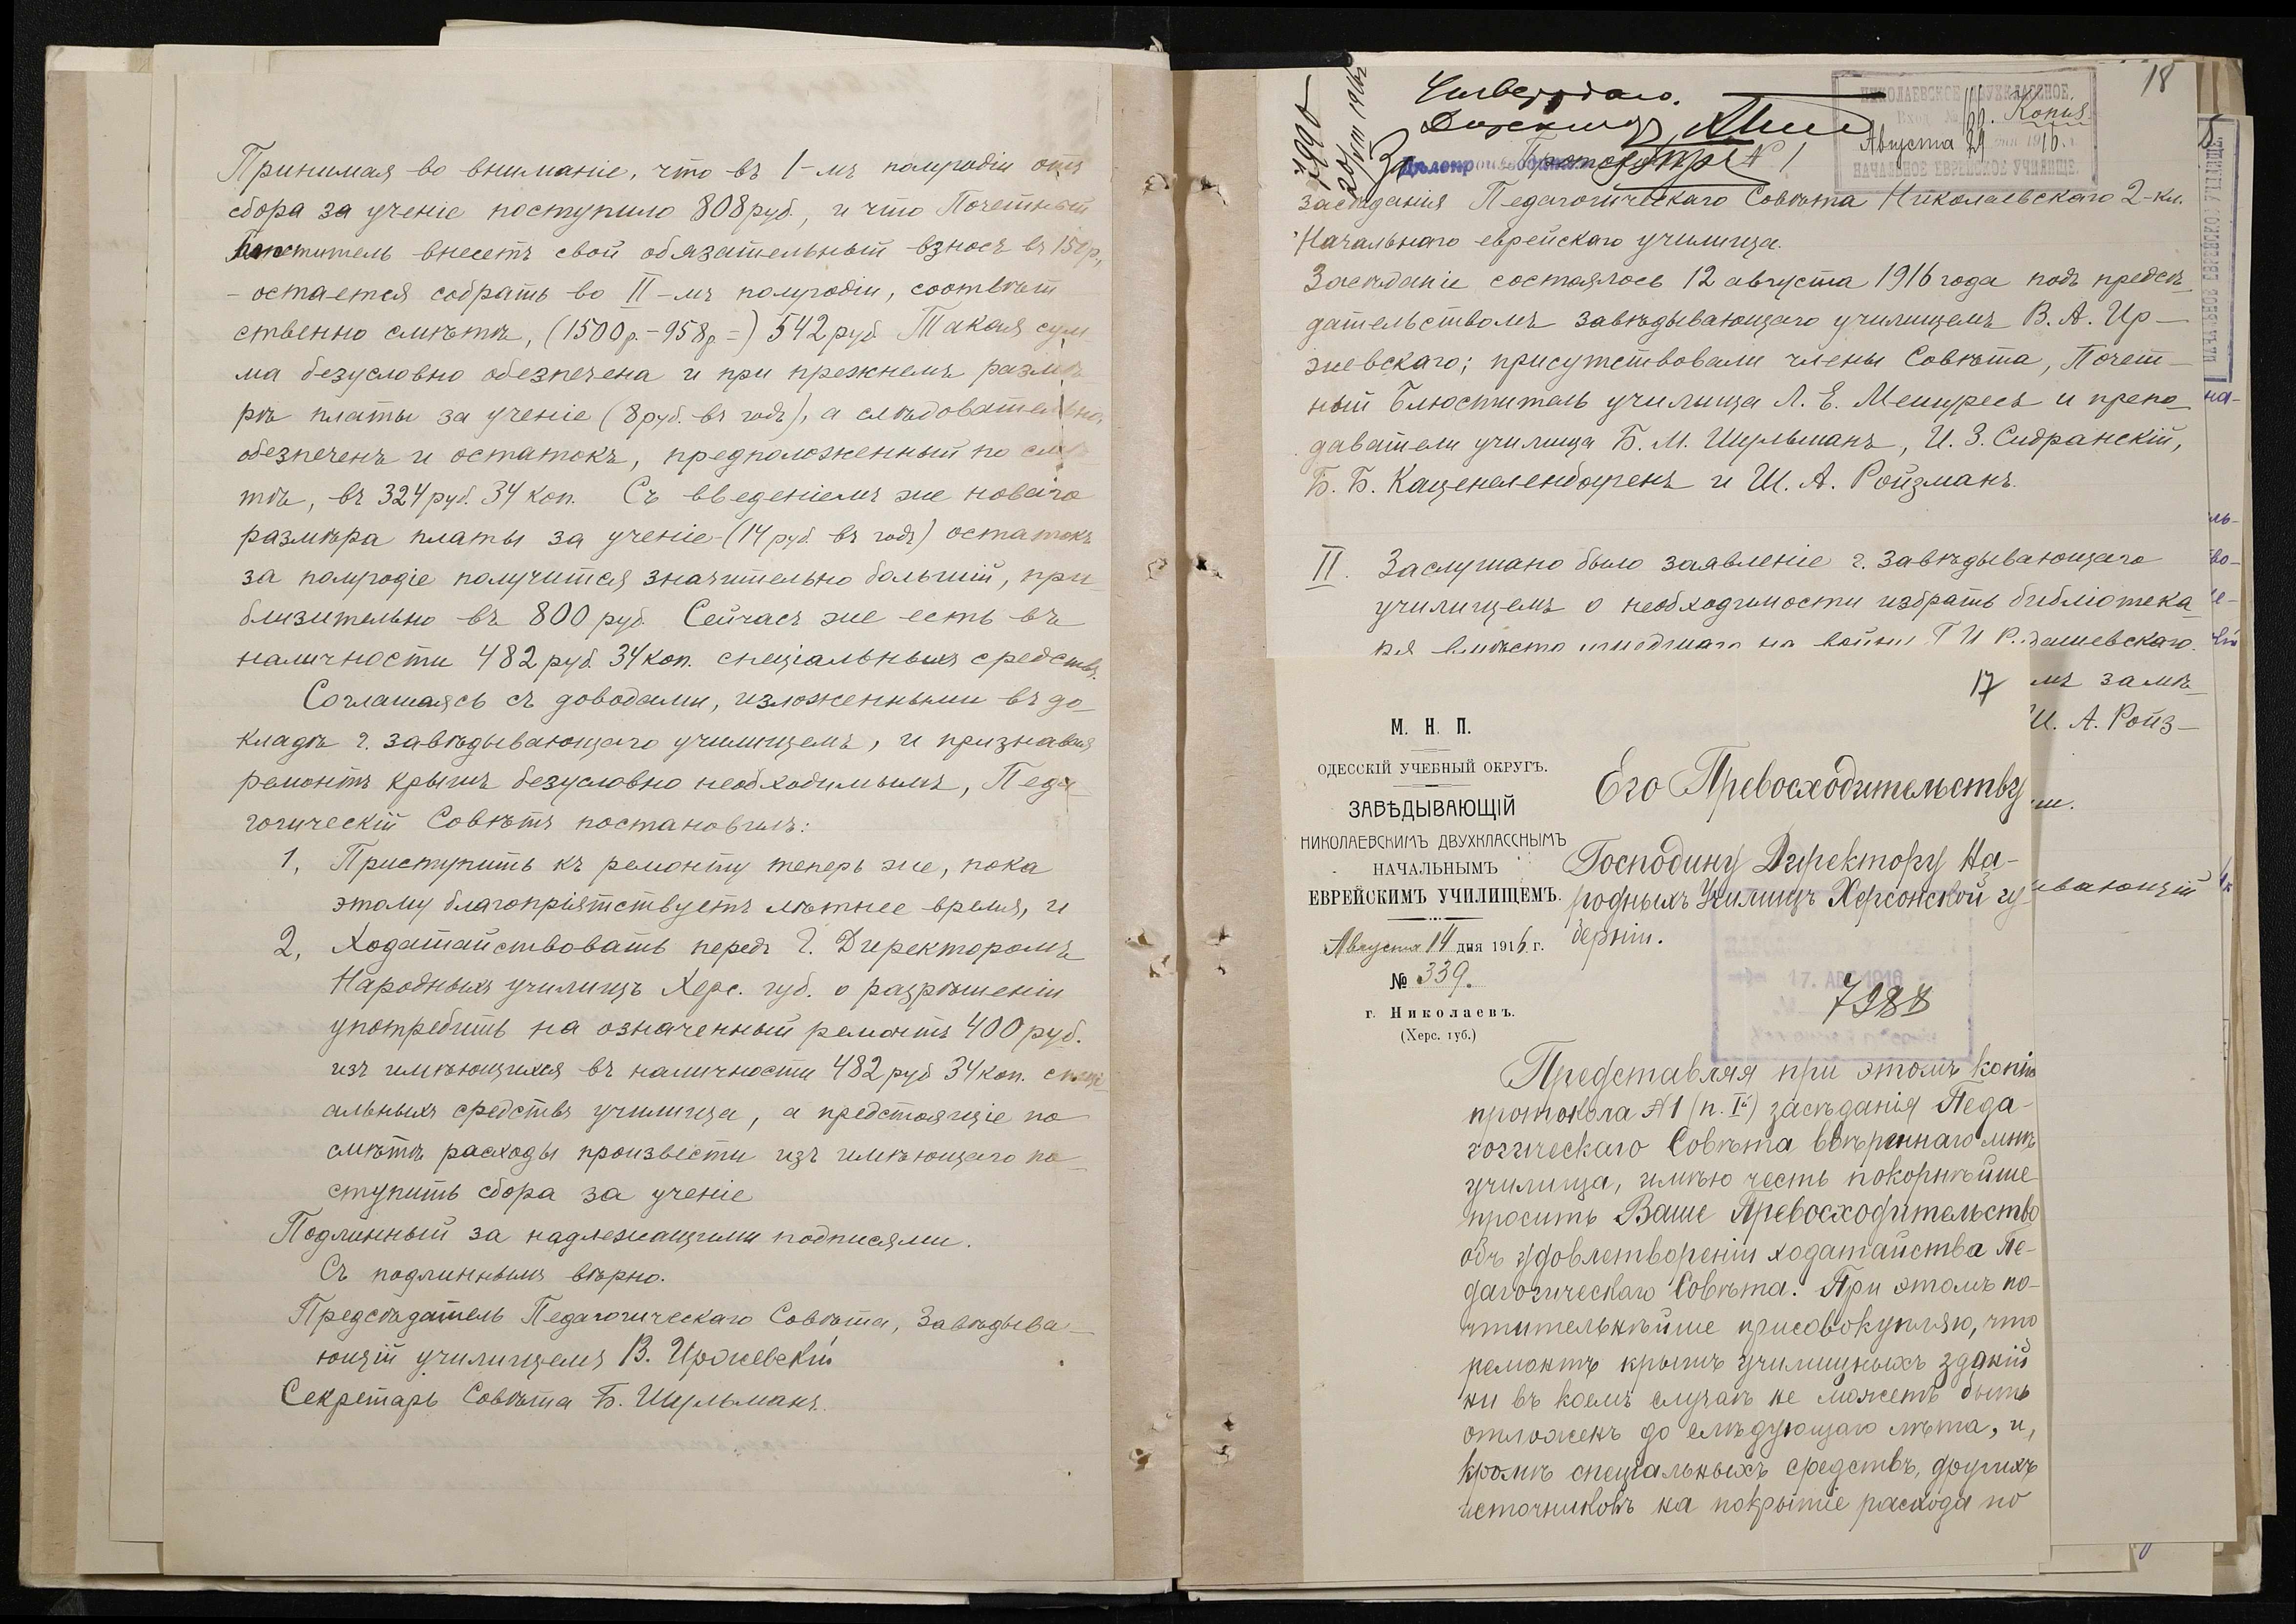 Принимая во вниманіе, что въ 1-мъ полугодіи отъ
сбора за ученіе поступило 808 руб., и что Почетный
Блюститель внесетъ свой обязательный взносъ въ 150 р.,
– остается собрать во II-мъ полугодіи, соотвѣт
ственно смѣтѣ, (1500 р. – 958 р =) 542 руб. Такая сум
ма безусловно обезпечена и при прежнемъ размѣ
рѣ платы за ученіе (8 руб. въ годъ), а слѣдовательно,
обезпеченъ и остатокъ, предположенный по смѣ
тѣ, въ 324 руб. 34 коп. Съ введеніемъ же новаго
размѣра платы за ученіе (14 руб. въ годъ) остатокъ
за полугодіе получится значительно большій, при
близительно въ 800 руб. Сейчасъ же есть въ
наличности 482 руб. 34 коп. спеціальныхъ средствъ.
Соглашаясь съ доводами, изложенными въ до
кладѣ г. завѣдывающаго училищемъ, и признавая
ремонтъ крышъ безусловно необходимымъ, Педа
гогическій Совѣтъ постановилъ:
1. Приступить къ ремонту теперь же, пока
этому благопріятствуетъ лѣтнее время, и
2. Ходатайствовать передъ Г. Директоромъ
Народныхъ училищъ Херс. губ. о разрѣшеніи
употребить на означенный ремонтъ 400 руб.
изъ имѣющихся въ наличности 482 руб 34 коп. спеці
альныхъ средствъ училища, а предстоящіе по
смѣтѣ расходы произвести изъ имѣющаго по
ступить сбора за ученіе
Подлинный за надлежащими подписями.
Съ подлиннымъ вѣрно.
Предсѣдатель Педагогическаго Совѣта, Завѣдыва
ющій училищемъ В. Иржевскій
Секретарь Совѣта Б. Шульманъ.
18
Утверждаю.
Директоръ
Копія
НИКОЛАЕВСКОЕ ДВУХКЛАССНОЕ
Августа 29 1916
НАЧАЛЬНОЕ ЕВРЕЙСКОЕ УЧИЛИЩЕ
Протоколъ № 1
засѣданія Педагогическаго Совѣта Николаевскаго 2-кл.
Начальнаго еврейскаго училища.
Засѣданіе состоялось 12 августа 1916 года подъ предсѣ
дательствомъ завѣдывающаго училищемъ В. А. Ир-
жевскаго; присутствовали члены Совѣта, Почет-
ный Блюститель училища Л. Е. Мешуресъ и препо
даватели училища Б. М. Шульманъ, И. З. Сидранскій,
Б. Б. Каценеленбогенъ и Ш. А. Ройзманъ.
II. Заслушано было заявленіе г. завѣдывающаго
училищемъ о необходимости избрать библіотека
ря вмѣсто на войну
мъ замѣ
Ш. А. Ройз-
вающій
17
М. Н. П.
ОДЕССКІЙ УЧЕБНЫЙ ОКРУГЪ.
ЗАВѢДЫВАЮЩІЙ
НИКОЛАЕВСКИМЪ ДВУХКЛАССНЫМЪ
НАЧАЛЬНЫМЪ
ЕВРЕЙСКИМЪ УЧИЛИЩЕМЪ.
Августа 14 дня 1916 г.
№ 339.
г. Николаевъ.
(Херс. губ.)
Его Превосходительству
Господину Директору На-
родныхъ Училищъ Херсонской гу-
берніи.
17. АВГ 1916
7988
Представляя при этомъ копію
протокола №1 (п. I-й) засѣданія Педа-
гогическаго Совѣта ввѣреннаго мнѣ
училища, имѣю честь покорнѣйше
просить Ваше Превосходительство
объ удовлетвореніи ходатайства Пе-
дагогическаго Совѣта. При этомъ по-
чтительнѣйше присовокупляю, что
ремонтъ крышъ училищныхъ зданій
ни въ коемъ случаѣ не можетъ быть
отложенъ до слѣдующаго лѣта, и,
кромѣ спеціальныхъ средствъ, другихъ
источниковъ на покрытіе расхода по